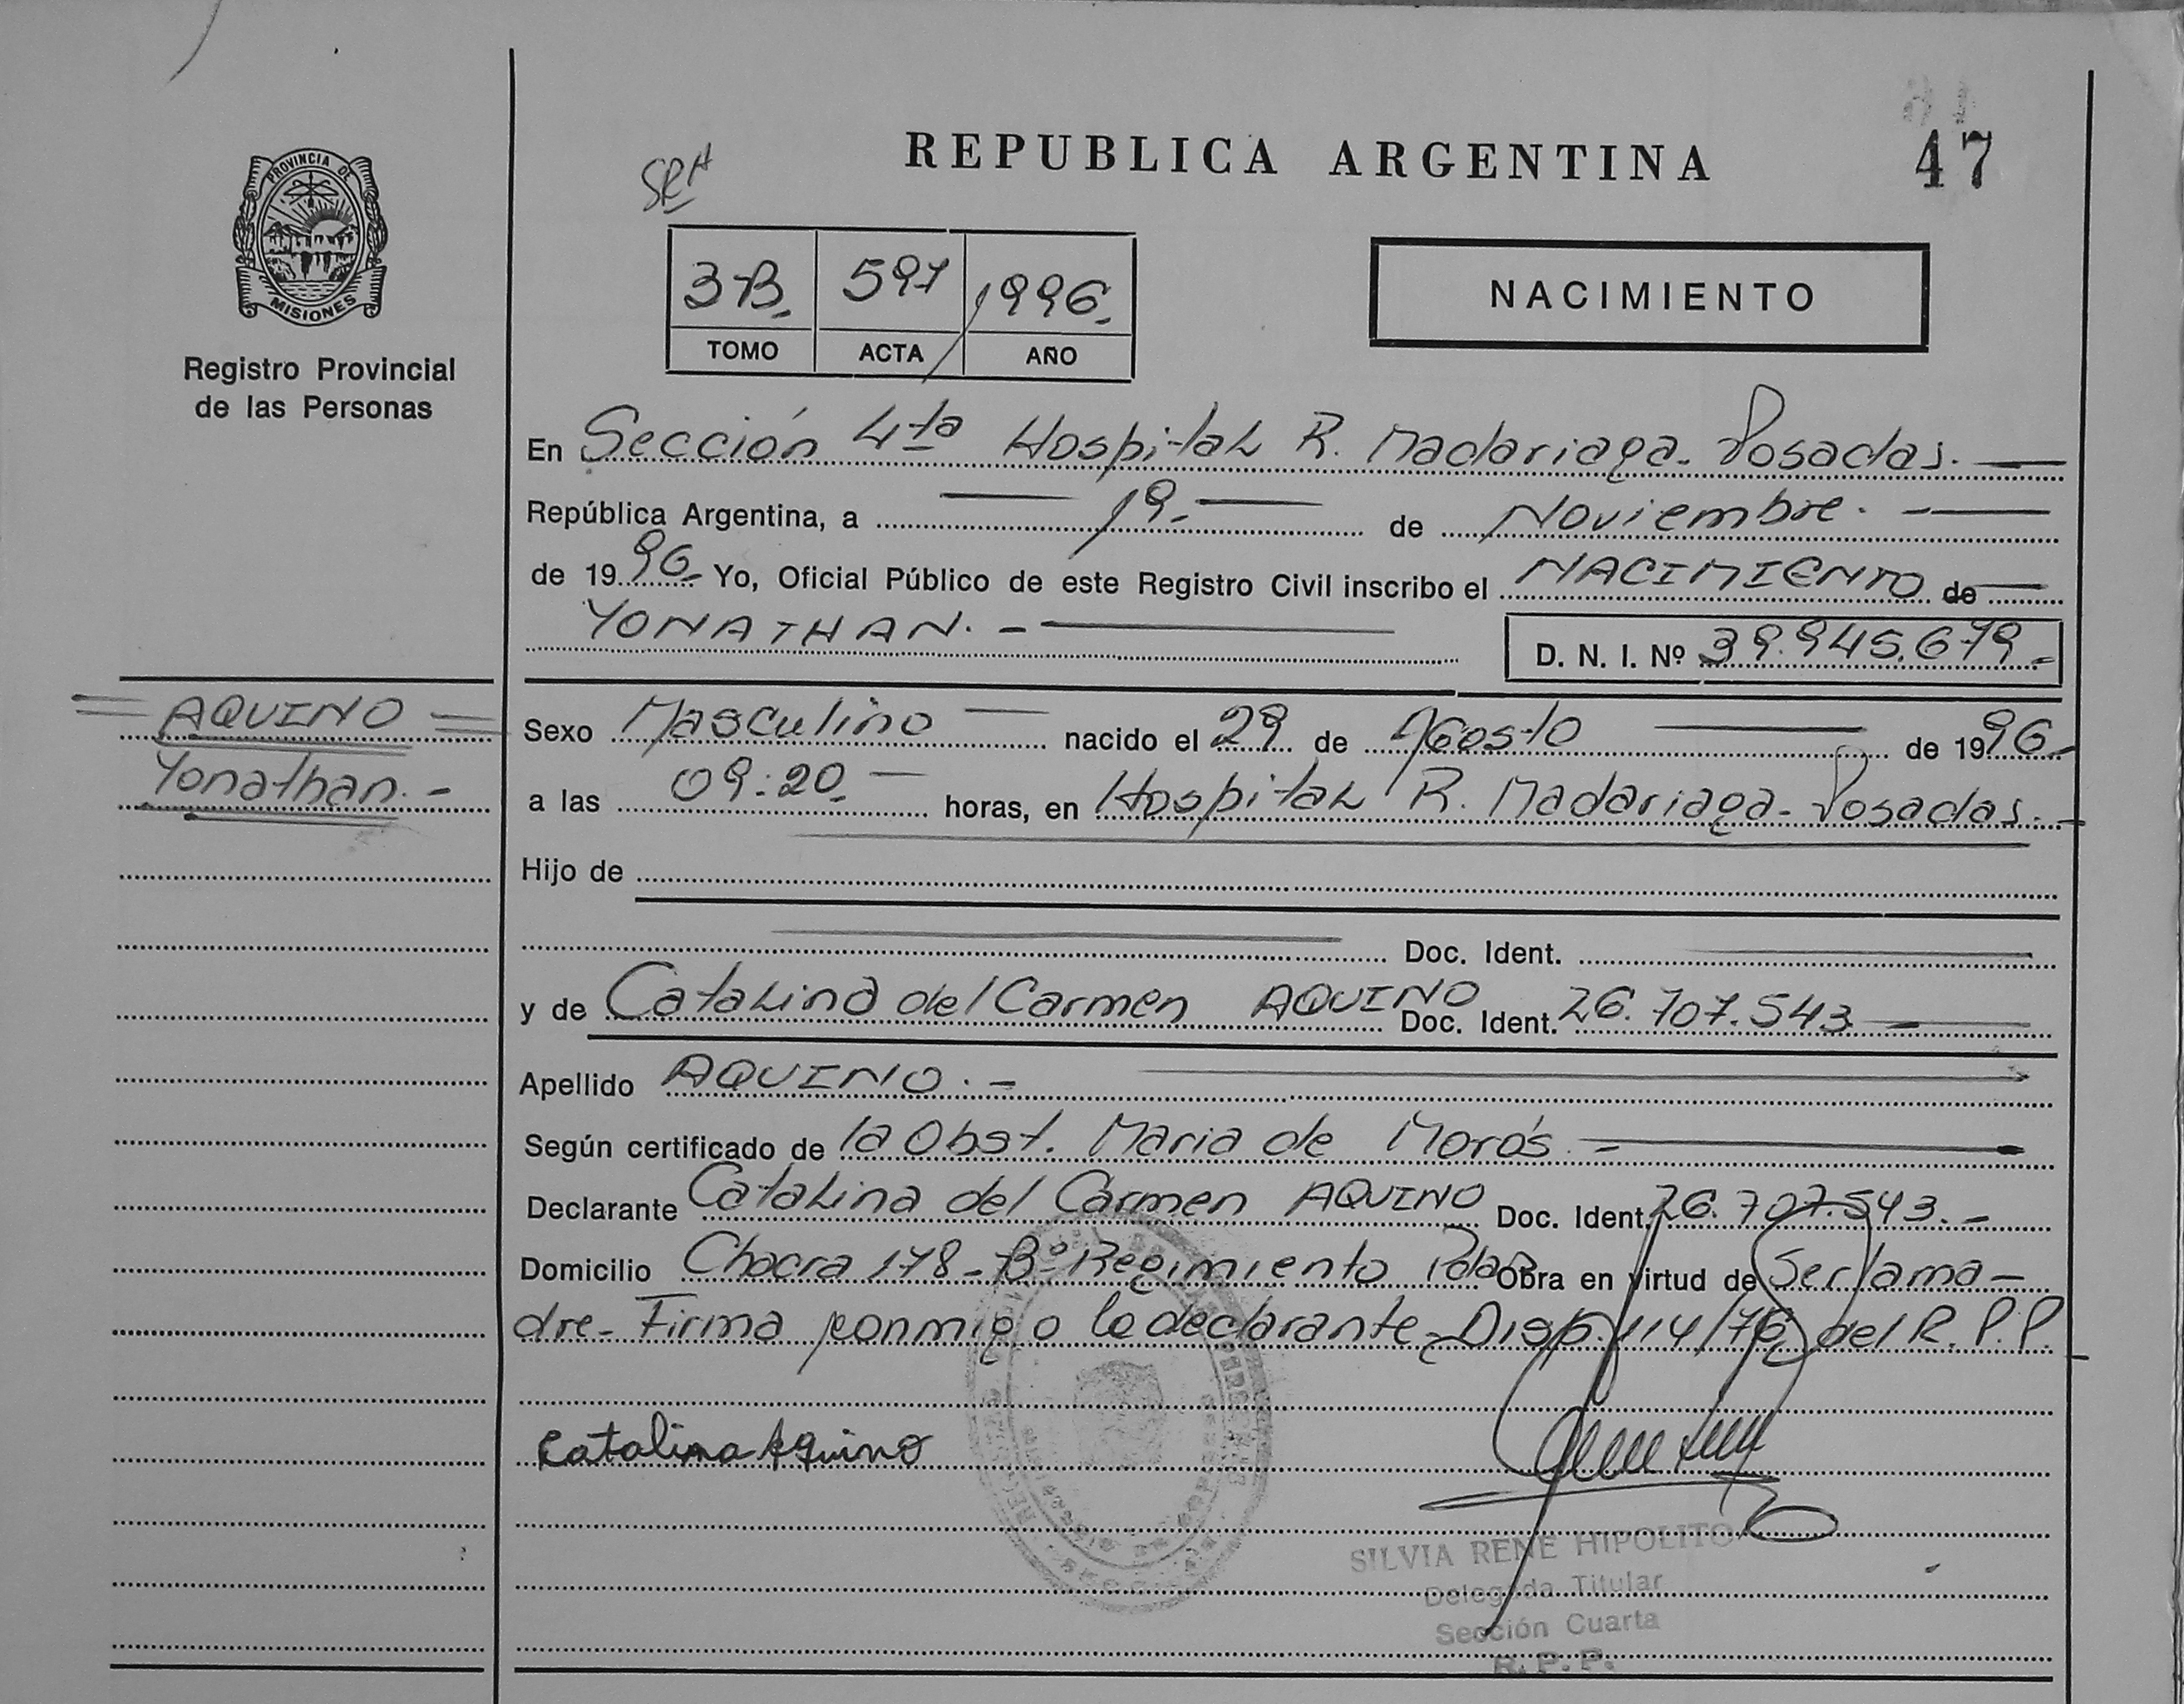 PROVINCIA DE
MISIONES
Registro Provincial
de las Personas
AQUINO
Yonathan.-
SRH
REPUBLICA ARGENTINA
47
3-B. 597 1996.
TOMO ACTA AÑO
NACIMIENTO
En Sección 4ta Hospital R. Madariaga- Posadas.-
República Argentina, a 19.- de Noviembre.-
de 1996.- Yo, Oficial Público de este Registro Civil inscribo el NACIMIENTO de
YONATHAN.- D. N. I. Nº 39.945.679.-
Sexo Masculino nacido el 29 de Agosto de 1996.-
a las 09:20.- horas, en Hospital R. Madariaga- Posadas.-
Hijo de
Doc. Ident.
y de Catalina del Carmen AQUINO Doc. Ident. 26.707.543.-
Apellido AQUINO.-
Según certificado de la Obst. Maria de Morós.-
Declarante Catalina del Carmen AQUINO Doc. Ident. 26.707.543.-
Domicilio Chacra 178-Bº Regimiento Pdas Obra en virtud de Ser la ma-
dre- Firma conmigo la declarante- Disp. 114/76 del R.P.P.
Catalina Aquino
SILVIA RENE HIPOLITO
Delegada Titular
Sección Cuarta
R. P. P.